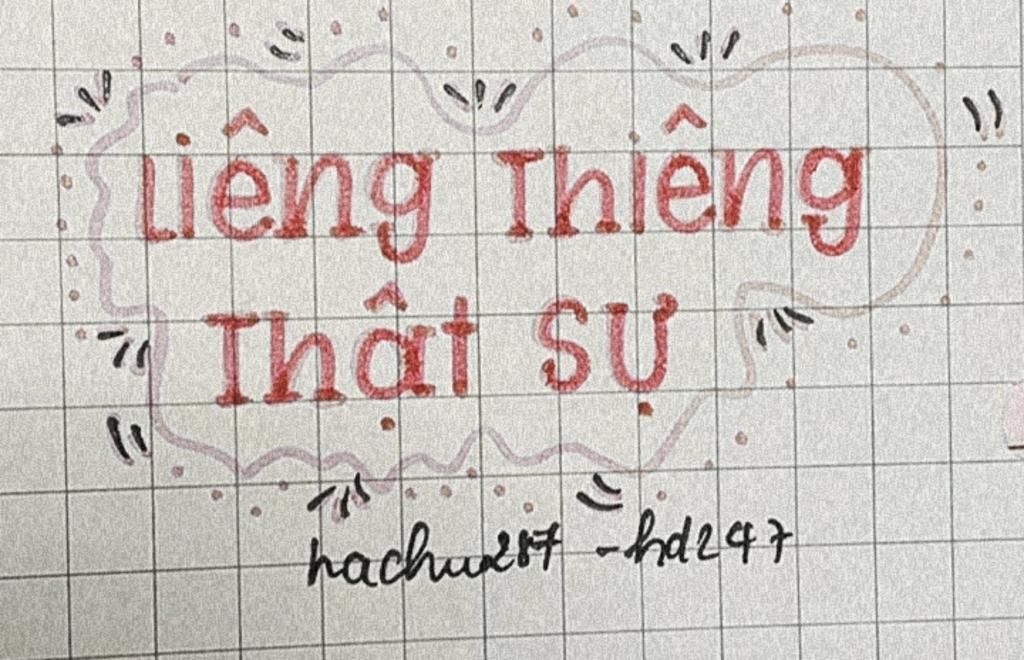 Liêng Thiêng
Thật Sự
hachux287 -hd247